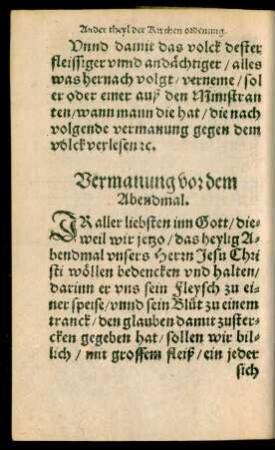 Ander theyl der Kirchen ordenung.
Vnnd damit das volck dester
fleissiger vnnd andächtiger / alles
was hernach volgt / verneme / sol
er oder einer auß den Ministran
ten / wann mann die hat / die nach
volgende vermanung gegen dem
völck verlesen ꝛc.
Vermanung vor dem
Abendmal.
IR aller liebsten inn Gott / die-
weil wir jetzo / das heylig A-
bendmal vnsers Herrn Jesu Chri
sti wöllen bedencken vnd halten /
darinn er vns sein Fleysch zu ei-
ner speise / vnnd sein Blůt zu einem
tranck / den glauben damit zuster-
cken gegeben hat / sollen wir bil-
lich / mit grossem fleiß / ein jeder
sich